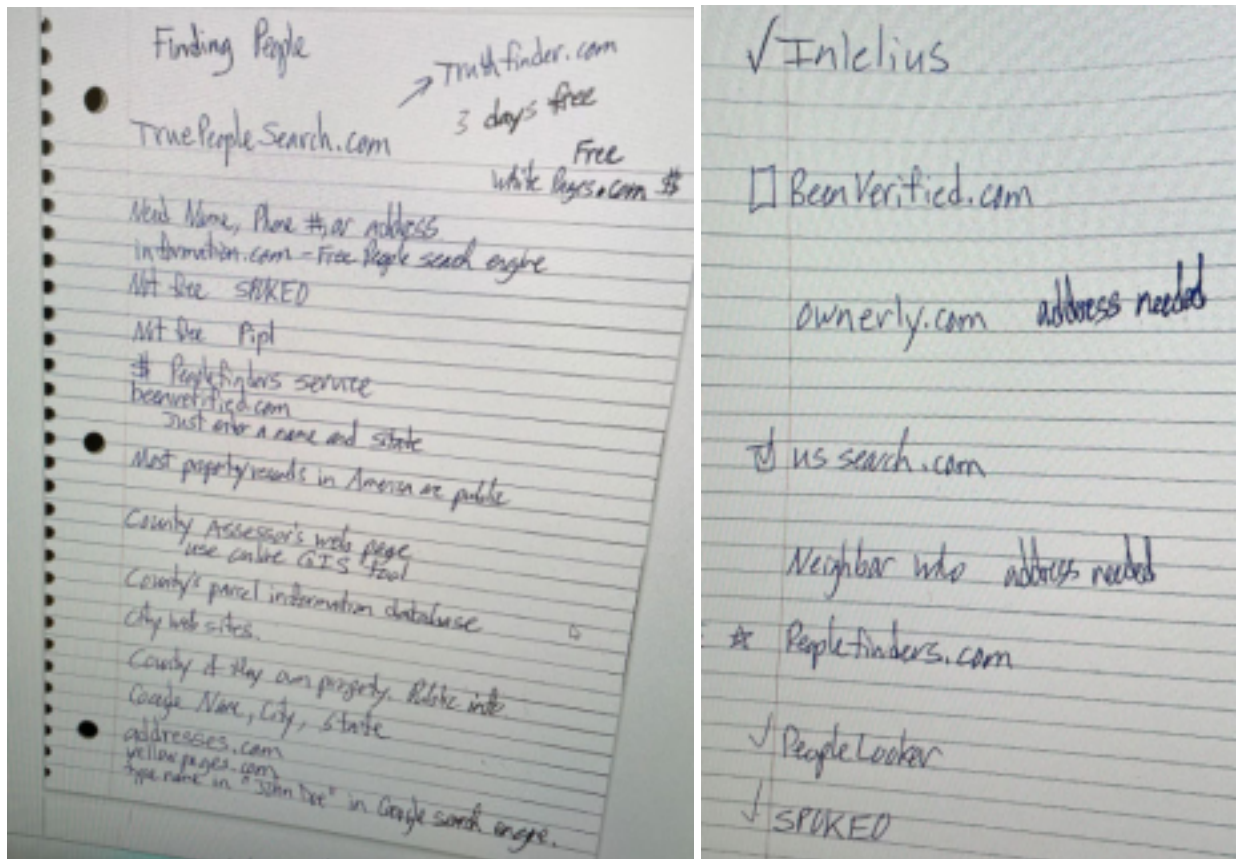 Finding People
Truthfinder.com
3 days free
TruePeopleSearch.com
Free
White Pages.com $
Need Name, Phone #, or address
information.com - Free People search engine
Not free SPOKEO
Not free Pipl
$ Peoplefinders service
beenverified.com
Just enter a name and state
Most property records in America are public
County Assessor's web page
use online GIS tool
County's parcel information database
City web sites.
County if they own property. Public info
Google Name, City, State
addresses.com
yellowpages.com
type name in "John Doe" in Google search engine.
✓ Intelius
☐ BeenVerified.com
ownerly.com address needed
☑ us search.com
Neighbor who address needed
☆ Peoplefinders.com
✓ PeopleLooker
✓ SPOKEO